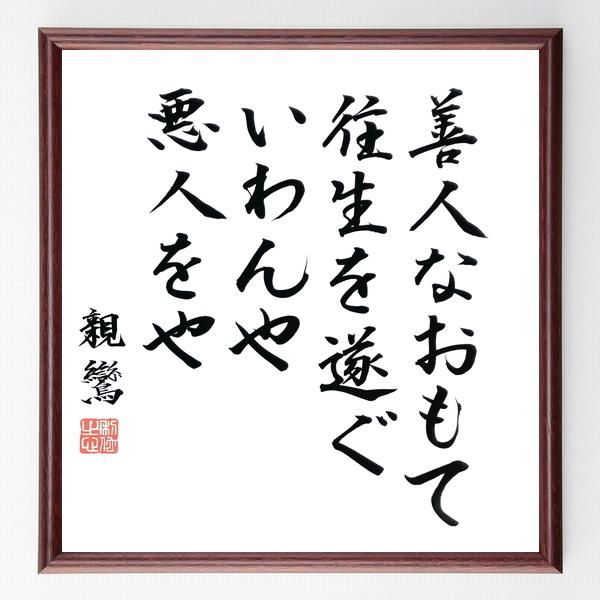 善人なおもて
往生を遂ぐ
いわんや
悪人をや
親鸞